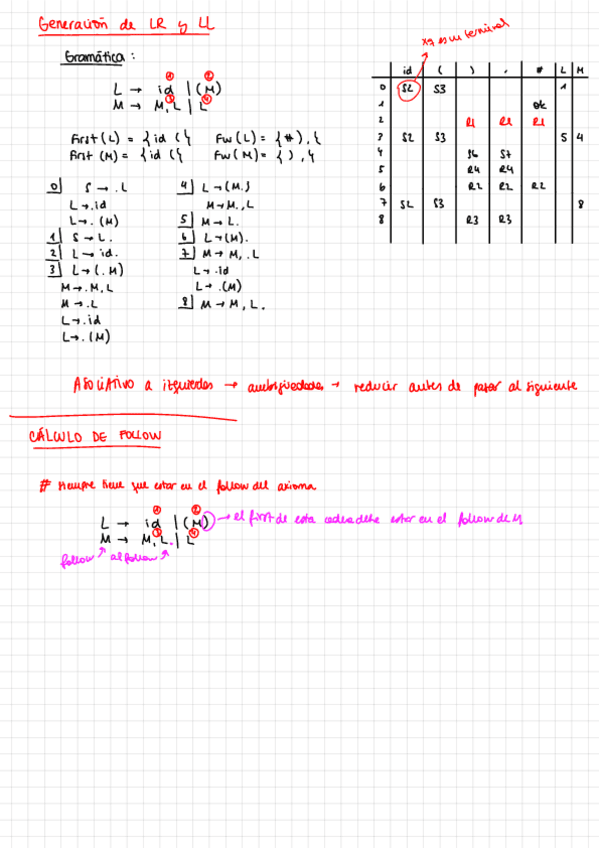 Generación de LR y LL
xq es un terminal
Gramática:
① ②
L → id | (M)
③ ④
M → M, L | L
First(L) = { id ({ Fw(L) = {#), {
First(M) = { id ({ Fw(M) = { ) , {
id ( ) , # L M
0 S2 S3 1
1 ok
2 R1 R1 R1
3 S2 S3 5 4
4 S6 S7
5 R4 R4
6 R2 R2 R2
7 S2 S3 8
8 R3 R3
0| S → .L
L → .id
L → .(M)
1| S → L.
2| L → id.
3| L → (.M)
M → .M, L
M → .L
L → .id
L → .(M)
4| L → (M.)
M → M., L
5| M → L.
6| L → (M).
7| M → M, .L
L → .id
L → .(M)
8| M → M, L.
ASOCIATIVO a izquierdas → ambigüedades → reducir antes de pasar al siguiente
CÁLCULO DE FOLLOW
# siempre tiene que estar en el follow del axioma
① ②
L → id | (M) → el first de esta cadena debe estar en el follow de M
③ ④
M → M, L. | L
follow al follow